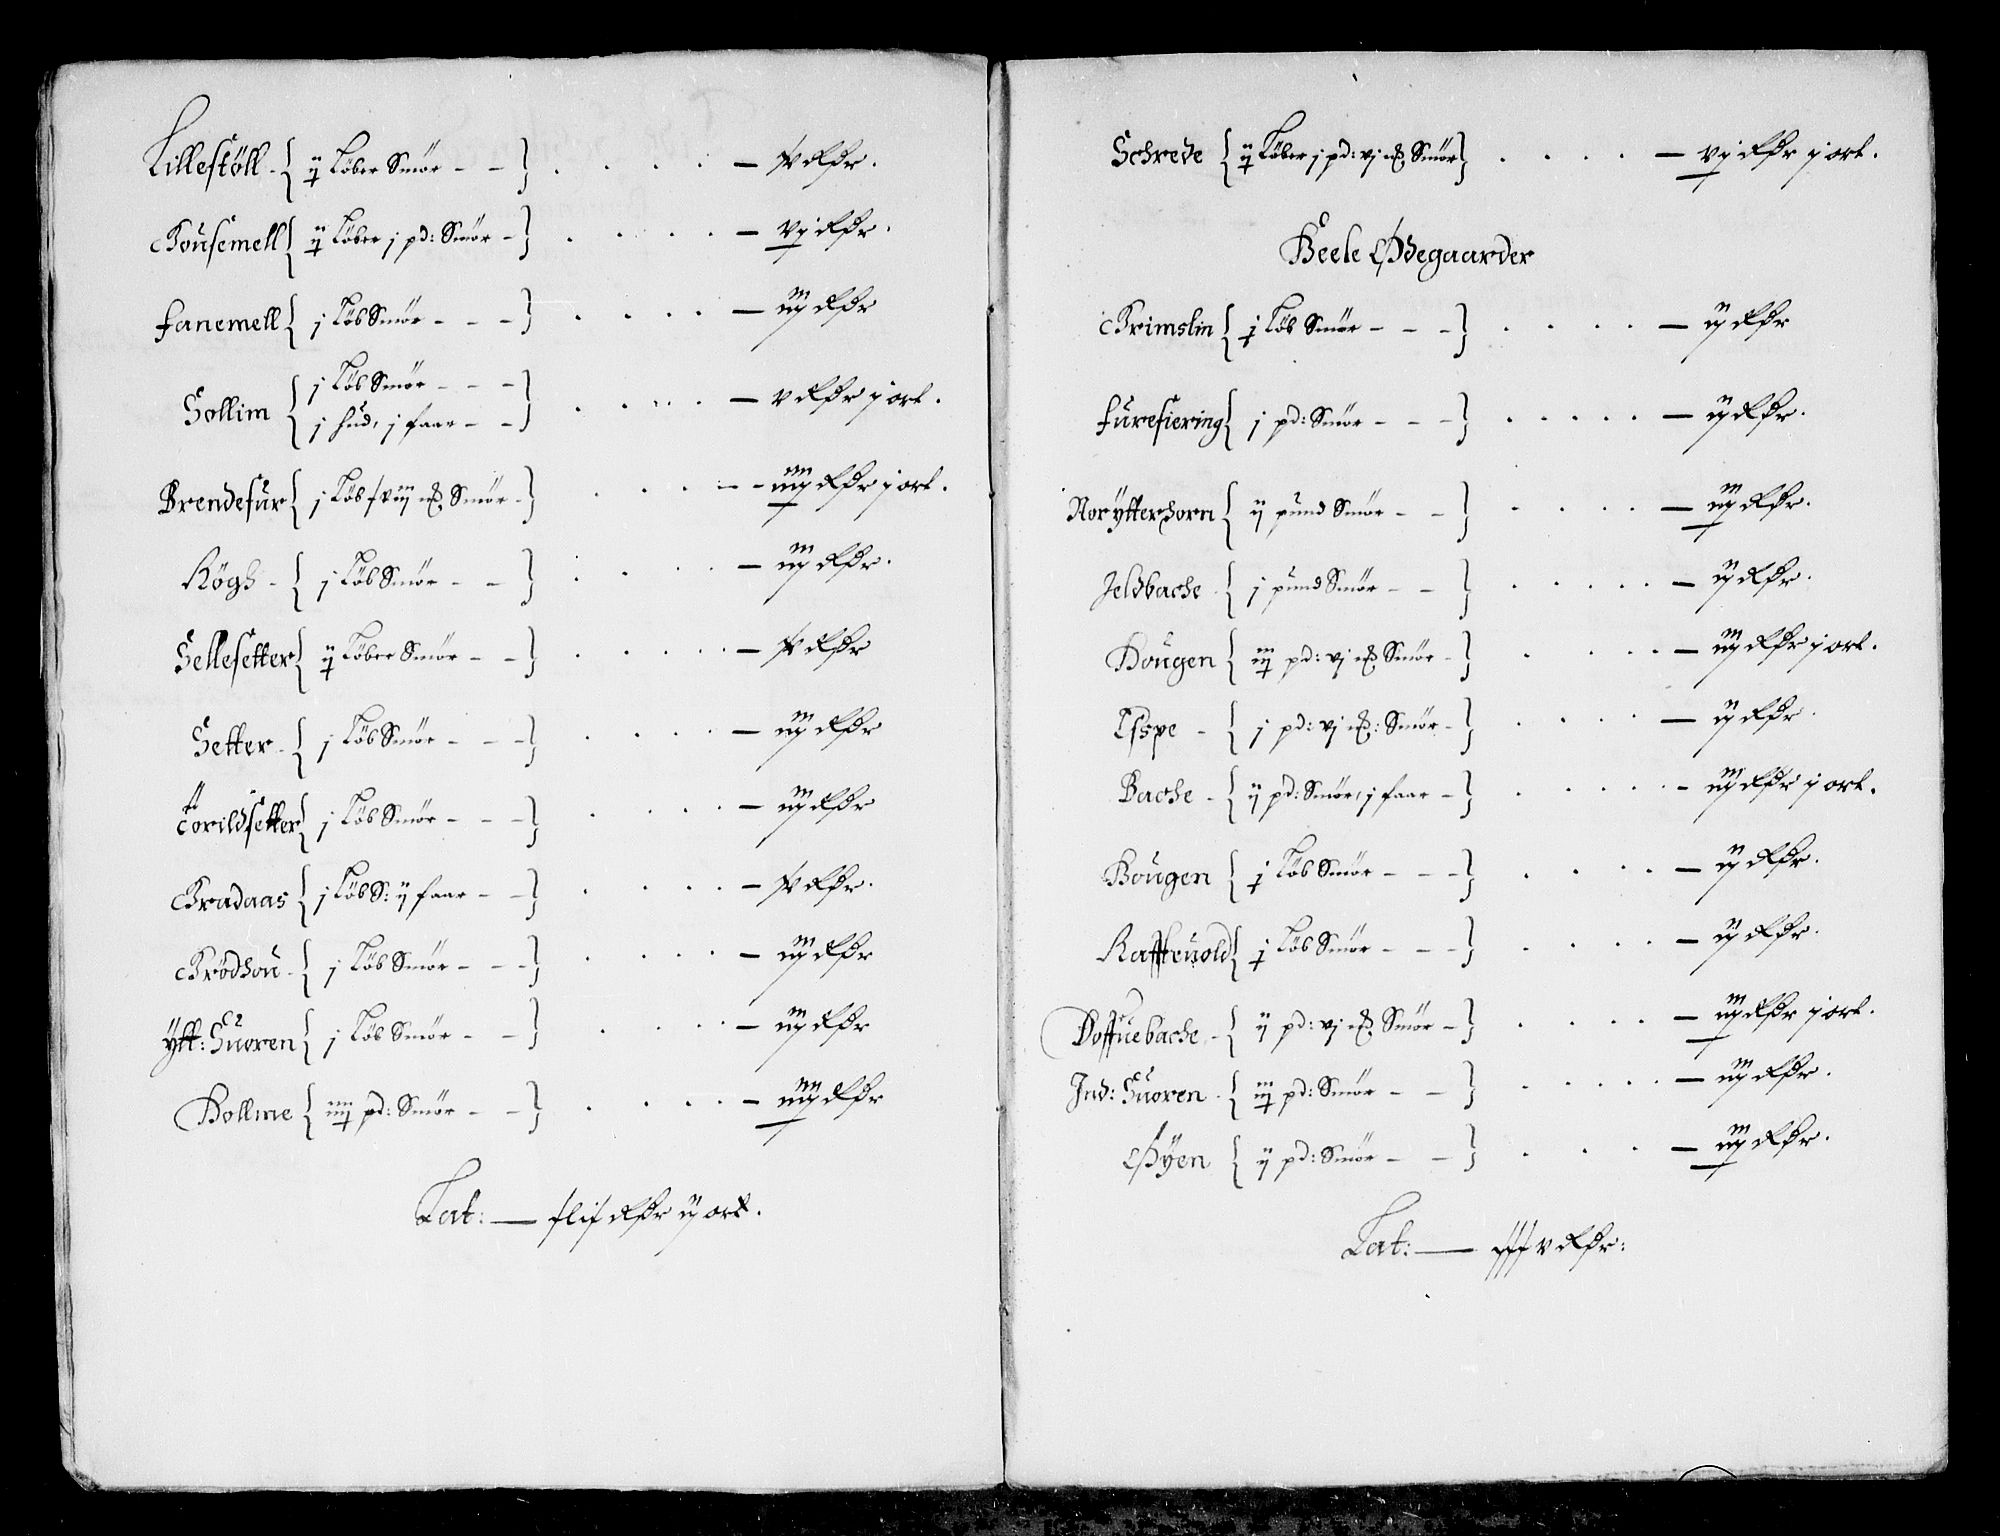 Lillestöll - { ij Löber Smör - - } . . . . — xv dlr.
Housemell { ij Löber j pd: Smör - } . . . . — vj dlr.
Fanemell { j Löb Smör - - - } . . . . — iij dlr
Sollim { j Löb Smör - - -
j hud, j faar - - } . . . . — v dlr j ort.
Brendefur { j Löb xviij Smör - } . . . — iiij dlr j ort.
Högh - { j Löb Smör - - } . . . . — iij dlr.
Sellesetter { ij Löber Smör - - } . . . . — dlr
Setter - { j Löb Smör - - - } . . . . — iij dlr
Torildsetter { j Löb Smör - - - } . . . . — iij dlr
Gradaas { j Löb S: ij faar - - } . . . . — dlr.
Grödhou - { j Löb Smör - - - } . . . . — iij dlr
Ytt: Suoren { j Löb Smör - - } . . . . — iij dlr
Hollme { iiij pd: Smör - - } . . . . — iiij dlr
Lat: — dlr ij ort.
Schrede { ij Löber j pd: vj Smör } . . . . — vj dlr j ort.
Heele Ödegaarder
Grimslin { j Löb Smör - - - } . . . . — ij dlr
Furesiering { j pd: Smör - - - } . . . . — ij dlr.
Nor ytterhorn { ij pund Smör - - } . . . . — iij dlr.
Jeldbache - { j pund Smör - - } . . . . — ij dlr.
Hougen { iij pd: vj Smör - } . . . . — iij dlr j ort.
Esspe - { j pd: vj : Smör - } . . . . — ij dlr.
Bache - { ij pd: Smör, j faar - } . . . . — iij dlr j ort.
Hougen { j Löb Smör - - - } . . . . — ij dlr.
Raffteuold { j Löb Smör - - - } . . . . — ij dlr.
Doffuebache - { ij pd: vj Smör - } . . . . — iij dlr j ort.
Ind: Suoren - { iij pd: Smör - - } . . . . — iij dlr.
Öyen { ij pd: Smör - - } . . . . — iij dlr.
Lat: — xxxv dlr: